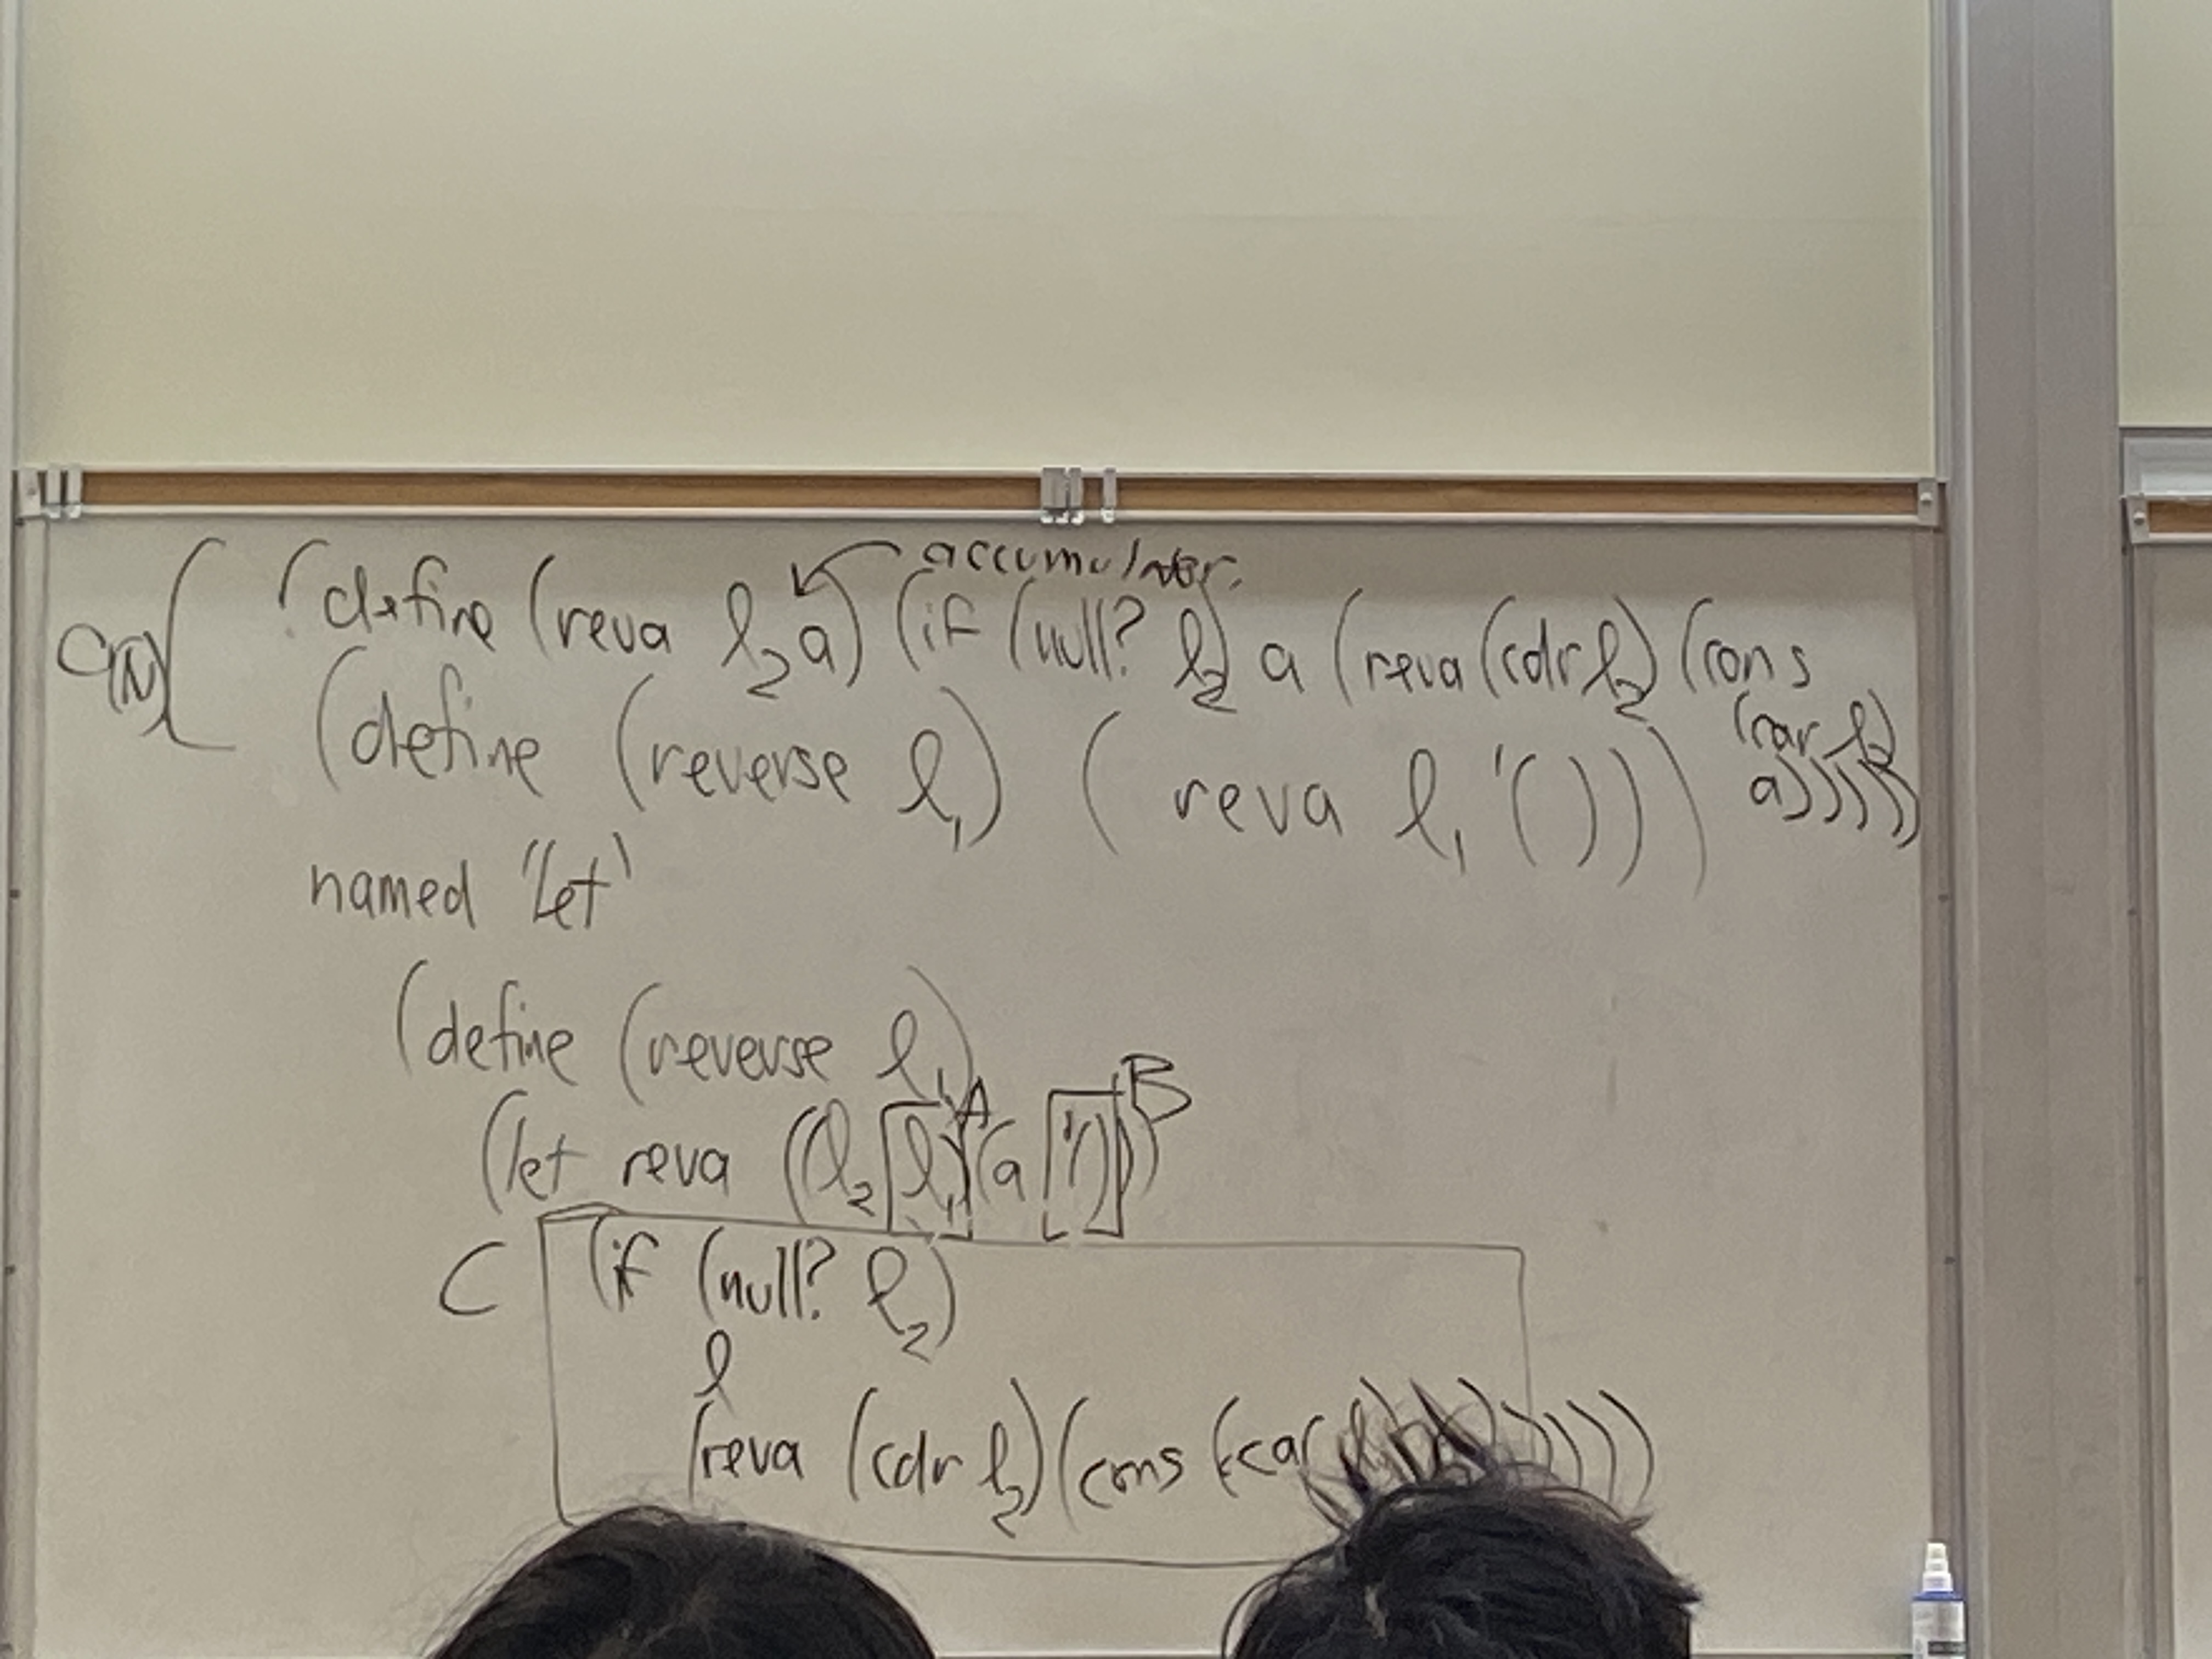 accumulator
O(N) (define (reva l₂ a) (if (null? l₂) a (reva (cdr l₂) (cons
(car l₂)
a)))))
(define (reverse l₁) (reva l₁ '()))
named 'let'
(define (reverse l₁)
A B
(let reva ((l₂ l₁) (a '()))
C (if (null? l₂)
l
(reva (cdr l₂) (cons (car